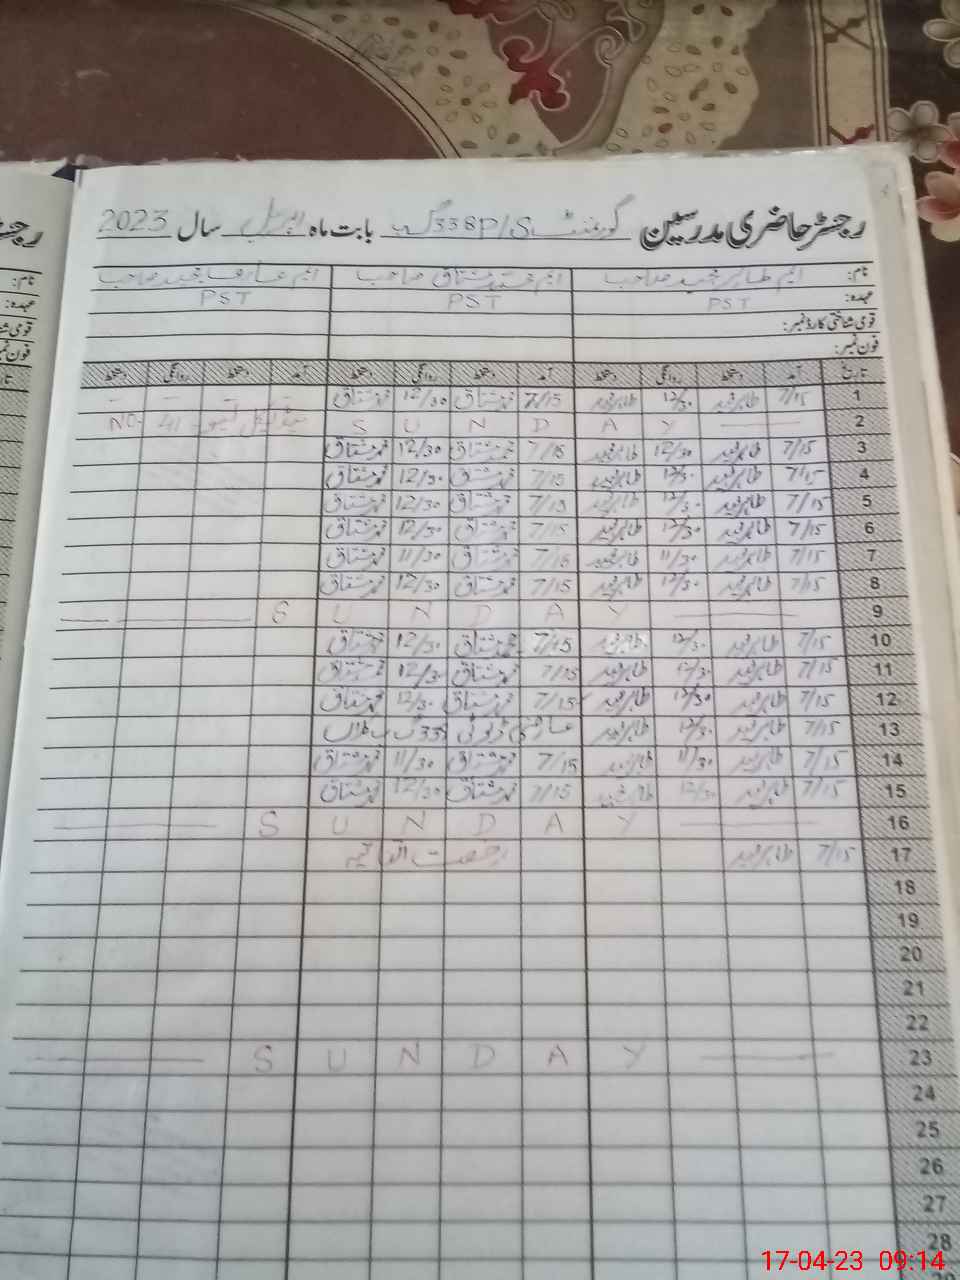 رجسٹر حاضری مدرسین گورنمنٹ P/S 338 گ ب بابت ماہ اپریل سال 2023
نام: ایم طاہر مجید صاحب ایم محمد مشتاق صاحب ایم صاحب
عہدہ: PST PST PST
قومی شناختی کارڈ نمبر:
فون نمبر:
تاریخ آمد دستخط روانگی دستخط آمد دستخط روانگی دستخط آمد دستخط روانگی دستخط
1 7/15 طاہر مجید 12/30 طاہر مجید 7/15 محمد مشتاق 12/30 محمد مشتاق
2 S U N D A Y NO. 41
3 7/15 طاہر مجید 12/30 طاہر مجید 7/15 محمد مشتاق 12/30 محمد مشتاق
4 7/15 طاہر مجید 12/30 طاہر مجید 7/15 محمد مشتاق 12/30 محمد مشتاق
5 7/15 طاہر مجید 12/30 طاہر مجید 7/15 محمد مشتاق 12/30 محمد مشتاق
6 7/15 طاہر مجید 12/30 طاہر مجید 7/15 محمد مشتاق 12/30 محمد مشتاق
7 7/15 طاہر مجید 11/30 طاہر مجید 7/15 محمد مشتاق 11/30 محمد مشتاق
8 7/15 طاہر مجید 12/30 طاہر مجید 7/15 محمد مشتاق 12/30 محمد مشتاق
9 S U N D A Y
10 7/15 طاہر مجید 12/30 طاہر مجید 7/15 محمد مشتاق 12/30 محمد مشتاق
11 7/15 طاہر مجید 12/30 طاہر مجید 7/15 محمد مشتاق 12/30 محمد مشتاق
12 7/15 طاہر مجید 12/30 طاہر مجید 7/15 محمد مشتاق 12/30 محمد مشتاق
13 7/15 طاہر مجید 12/30 طاہر مجید عارضی ڈیوٹی گ ب
14 7/15 طاہر مجید 11/30 طاہر مجید 7/15 محمد مشتاق 11/30 محمد مشتاق
15 7/15 طاہر مجید 12/30 طاہر مجید 7/15 محمد مشتاق 12/30 محمد مشتاق
16 S U N D A Y
17 7/15 طاہر مجید رخصت اتفاقیہ
18
19
20
21
22
23 S U N D A Y
24
25
26
27
28
17-04-23 09:14